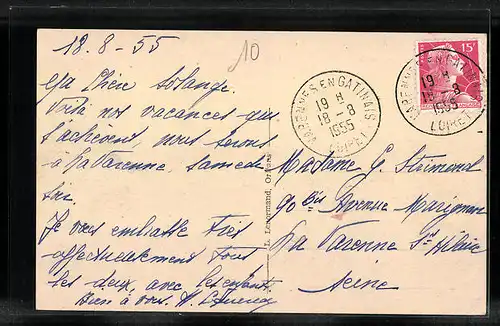 18-8-55
10
Ma Chère Solange.
Voilà nos vacances qui
s'achèvent nous serons
à La Varenne, Samedi
soir.
Je vous embrasse très
affectueusement tous
les deux, avec les enfants
Bien à vous.
L. Lenormand, Orléans
VARENNES EN GATINAIS
19 H
18-8
1955
LOIRET
15F
VARENNES EN GATINAIS
19 H
18-8
1955
LOIRET
Madame G.
90 bis Avenue Marignan
La Varenne St Hilaire
Seine